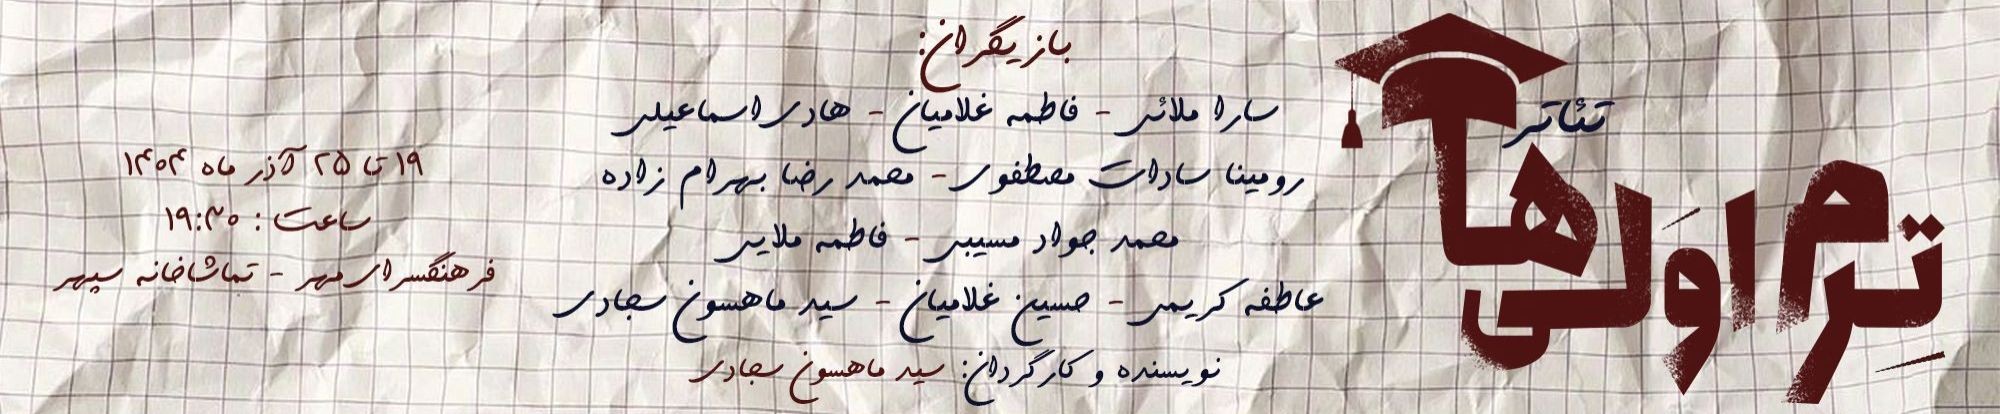 تئاتر
تِرم اوَلی ها
بازیگران:
سارا ملائی - فاطمه غلامیان - هادی اسماعیلی
رومینا سادات مصطفوی - محمد رضا بهرام زاده
محمد جواد مسیبی - فاطمه ملایی
عاطفه کریمی - حسین غلامیان - سید ماهسون سجادی
نویسنده و کارگردان: سید ماهسون سجادی
۱۹ تا ۲۵ آذر ماه ۱۴۰۴
ساعت: ۱۹:۳۰
فرهنگسرای مهر - تماشاخانه سپهر